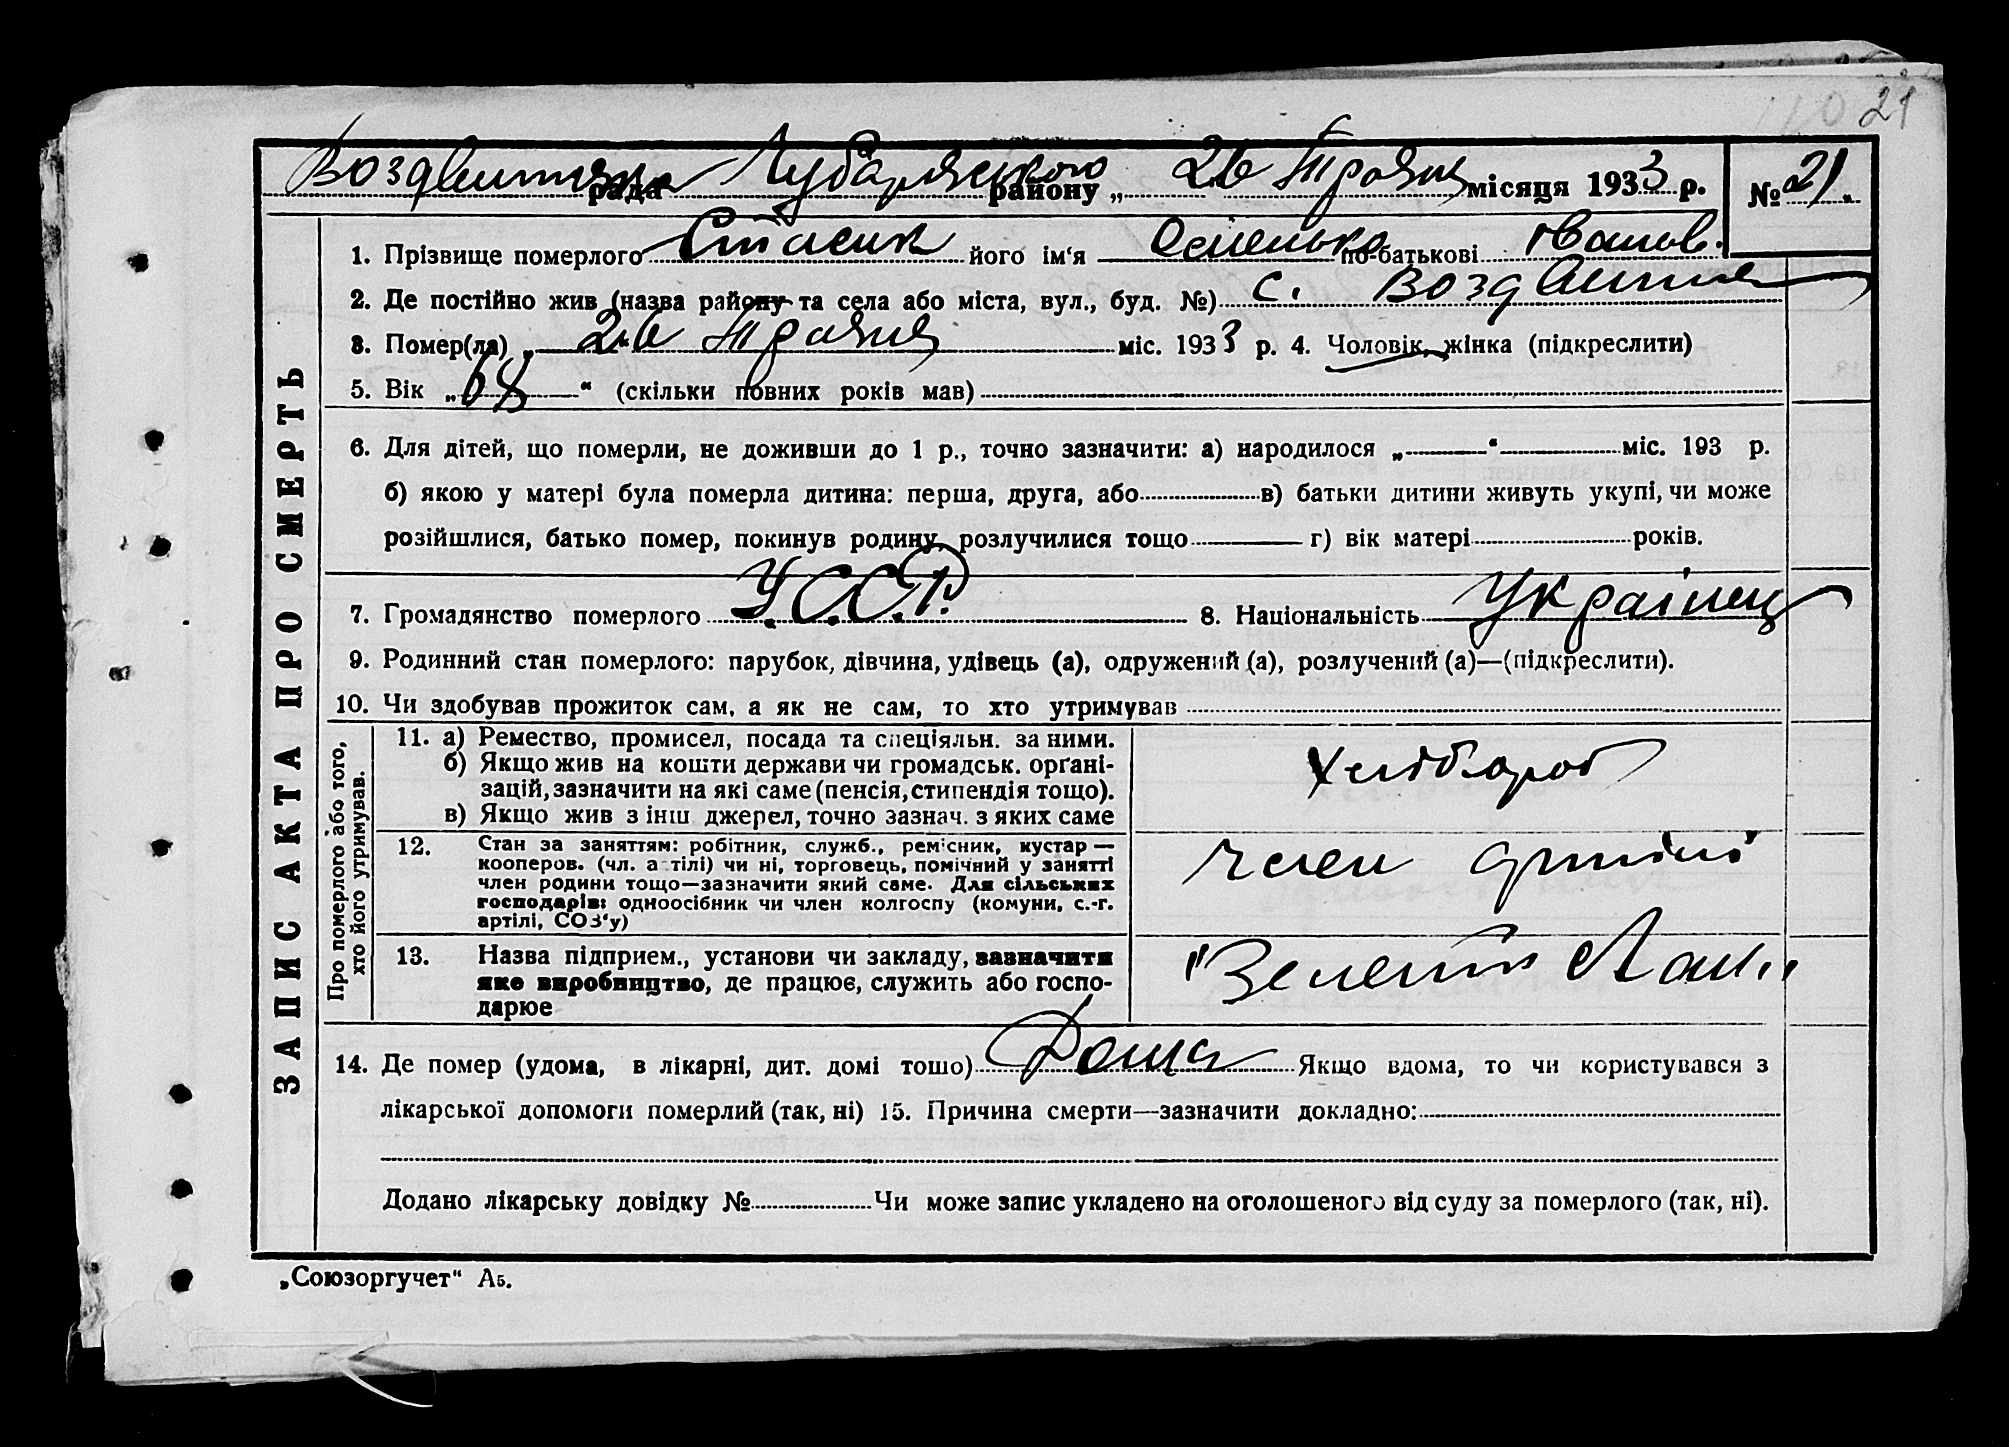 21
Чубарівського
рада району „ 26 Травня місяця 1933 р. № 21
ЗАПИС АКТА ПРО СМЕРТЬ
1. Прізвище померлого Стасик його ім'я по-батькові Іванов.
2. Де постійно жив (назва району та села або міста, вул., буд. №) с.
3. Помер(ла) „ 26 " Травня міс. 1933 р. 4. Чоловік, жінка (підкреслити)
5. Вік „ 68 " (скільки повних років мав)
6. Для дітей, що померли, не доживши до 1 р., точно зазначити: а) народилося „ " міс. 193 р.
б) якою у матері була померла дитина: перша, друга, або в) батьки дитини живуть укупі, чи може
розійшлися, батько помер, покинув родину, розлучилися тощо г) вік матері років.
7. Громадянство померлого У.С.С.Р. 8. Національність Українець
9. Родинний стан померлого: парубок, дівчина, удівець (а), одружений (а), розлучений (а)—(підкреслити).
10. Чи здобував прожиток сам, а як не сам, то хто утримував
Про померлого або того,
хто його утримував.
11. а) Ремество, промисел, посада та спеціяльн. за ними.
б) Якщо жив на кошти держави чи громадськ. орґані-
зацій, зазначити на які саме (пенсія, стипендія тощо).
в) Якщо жив з інш джерел, точно зазнач. з яких саме
Хлібороб
12. Стан за заняттям: робітник, служб., ремісник, кустар —
кооперов. (чл. артілі) чи ні, торговець, помічний у занятті
член родини тощо—зазначити який саме. Для сільських
господарів: одноосібник чи член колгоспу (комуни, с.-г.
артілі, СОЗ'у)
член артілі
13. Назва підприєм., установи чи закладу, зазначити
яке виробництво, де працює, служить або госпо-
дарює
"Зелений Лан"
14. Де помер (удома, в лікарні, дит. домі тошо) Дома Якщо вдома, то чи користувався з
лікарської допомоги померлий (так, ні) 15. Причина смерти—зазначити докладно:
Додано лікарську довідку № Чи може запис укладено на оголошеного від суду за померлого (так, ні).
„Союзоргучет" А5.